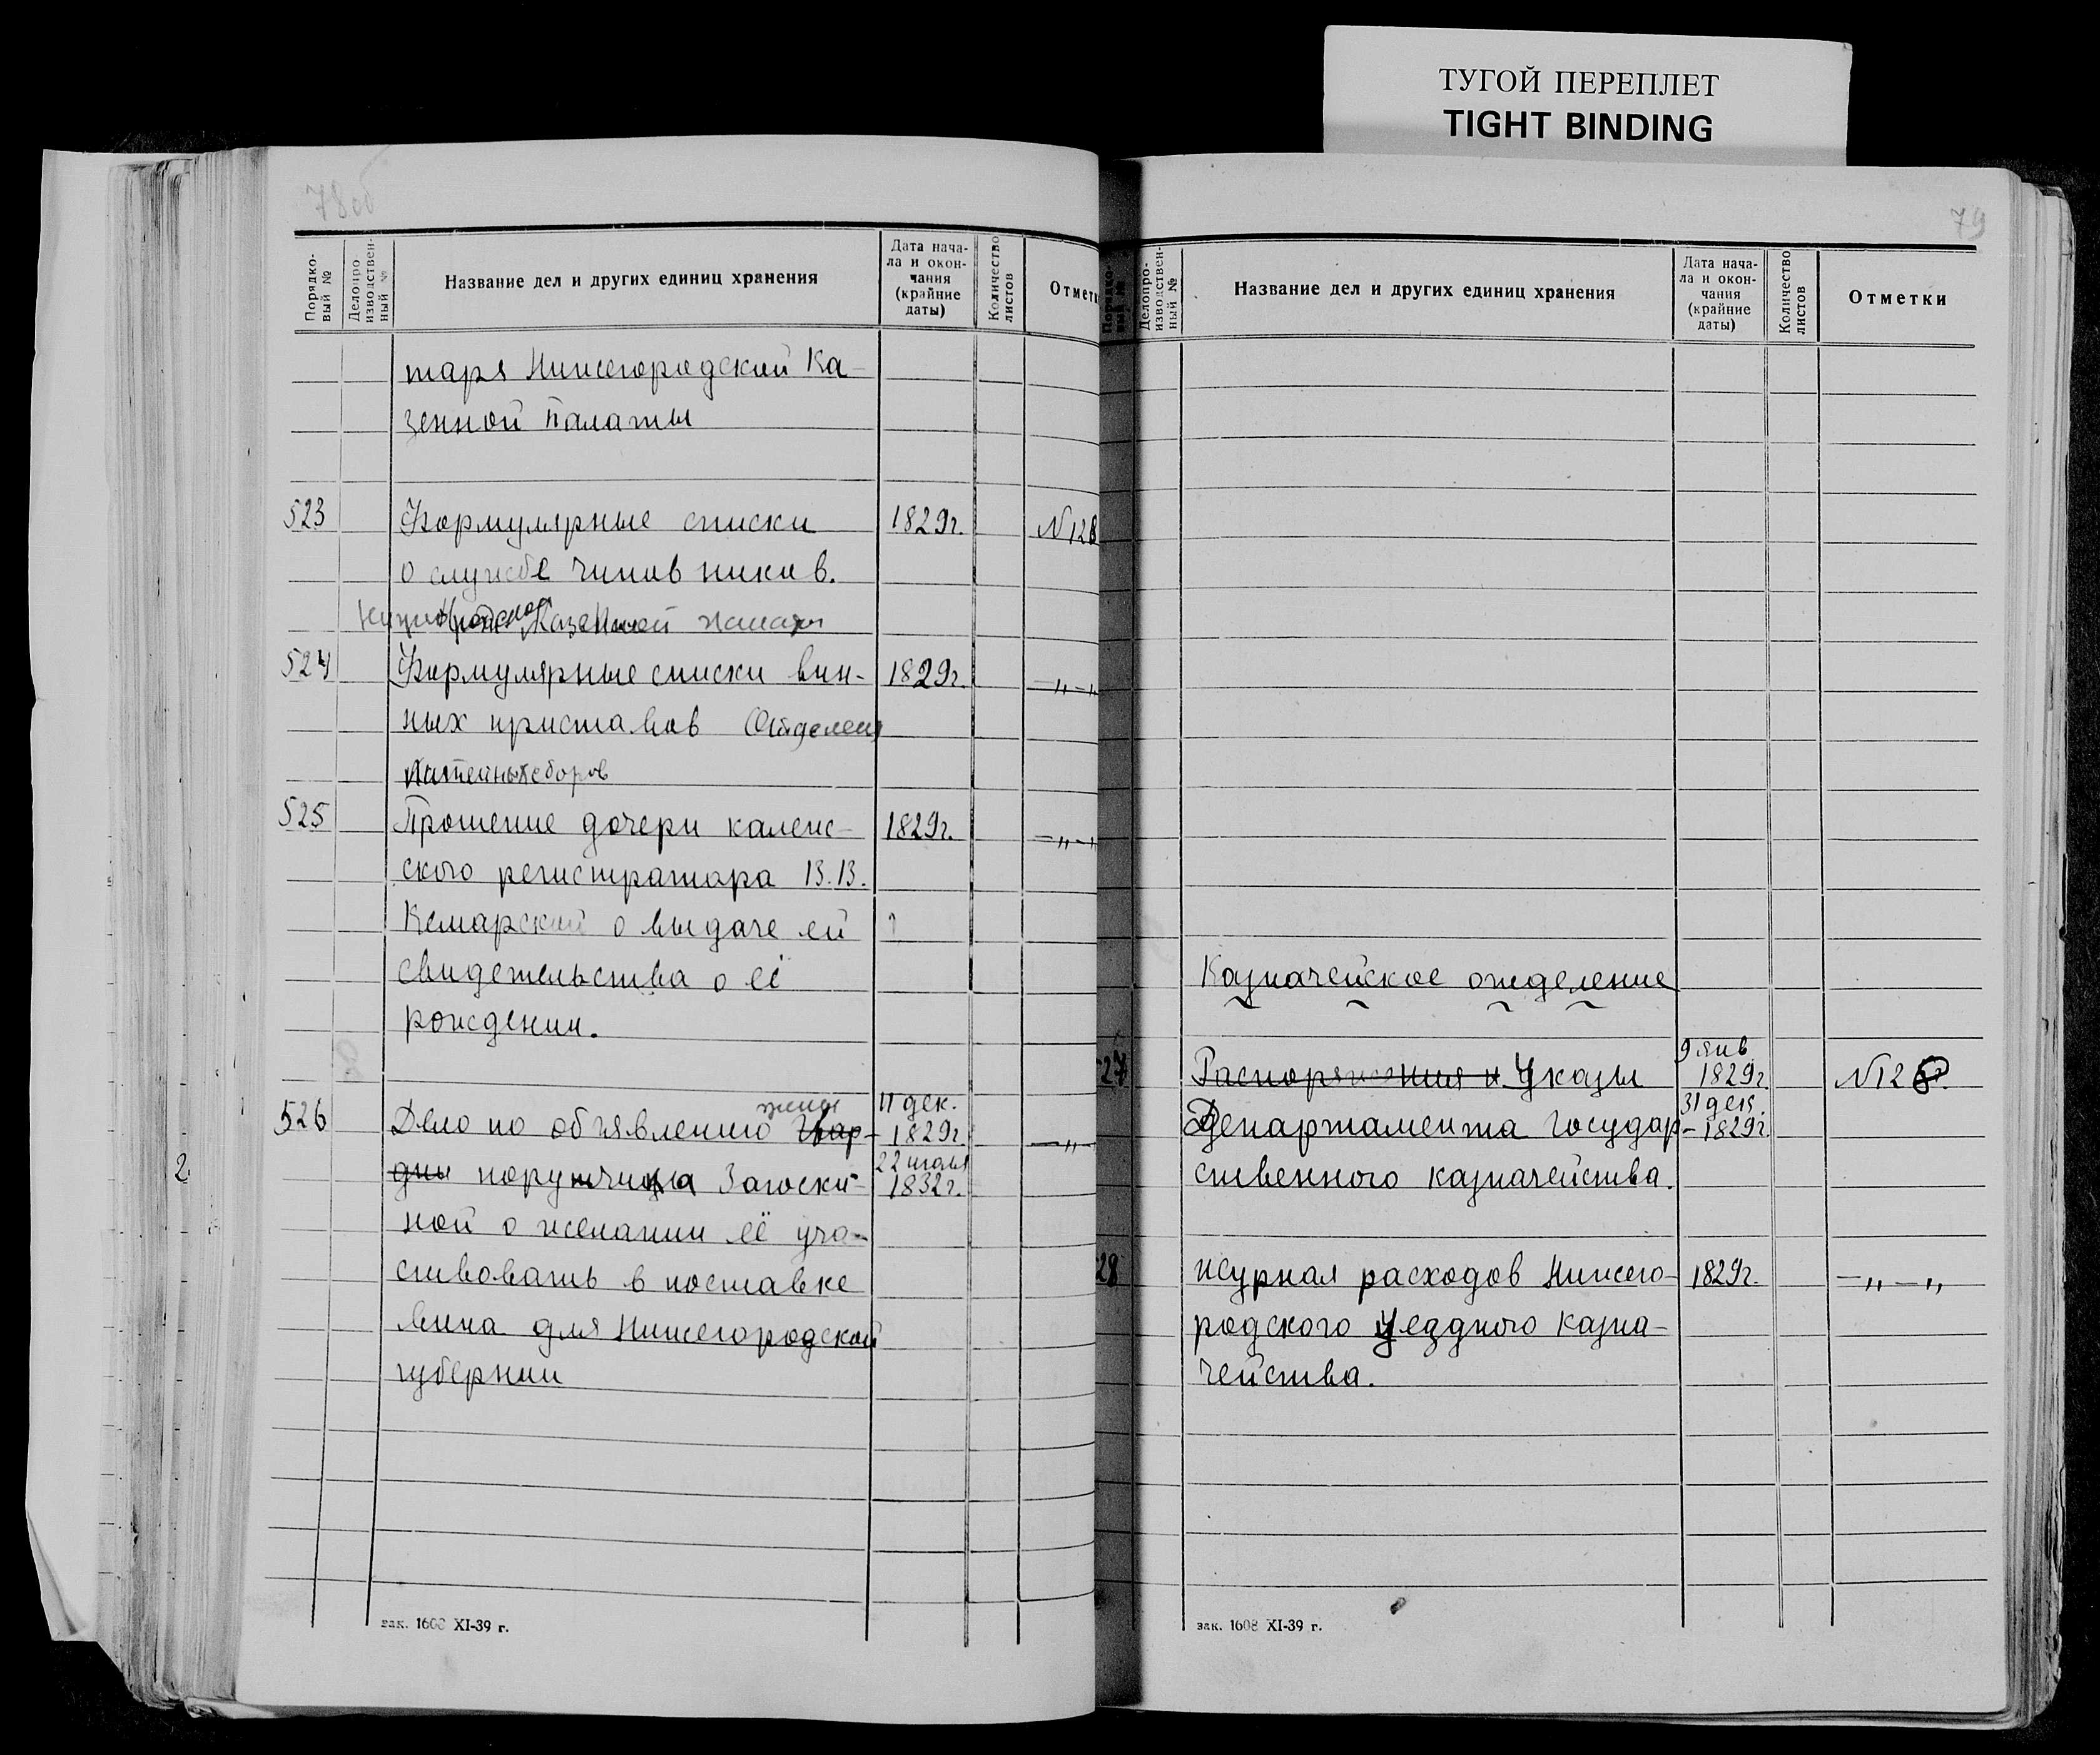 ТУГОЙ ПЕРЕПЛЕТ
TIGHT BINDING
78об
Порядко-
вый №
Делопро
изводствен-
ный №
Название дел и других единиц хранения
Дата нача-
ла и окон-
чания
(крайние
даты)
Количество
листов
Отметк
таря Нижегородский Ка-
зенной Палаты
523 Формулярные списки 1829г. N 128
о службе чиновников.
Казенной палаты
524 Формулярные списки вин- 1829г. —„—„
ных приставов Отделен
Питейных сборов
525 Прошение дочери коллеж- 1829г. —„—„
ского регистратора В.В.
Кемарской о выдаче ей
свидетельства о её
рождении.
526 Дело по объявлению жены гвар- 11 дек. 1829г. —„—
дии поручика Загоски- 22 июля 1832г.
ной о желании её уча-
ствовать в поставке
вина для Нижегородской
губернии
2
зак. 1608 XI-39 г.
79
Порядко-
вый №
Делопро-
изводствен-
ный №
Название дел и других единиц хранения
Дата нача-
ла и окон-
чания
(крайние
даты)
Количество
листов
Отметки
Казначейское отделение
27 Распоряжения и Указы 9 янв 1829г. N 128.
Департамента Государ- 31 дек. -1829г.
ственного казначейства.
28 Журнал расходов Нижего- 1829г. —„—„
родского Уездного Казна-
чейства.
зак. 1608 XI-39 г.